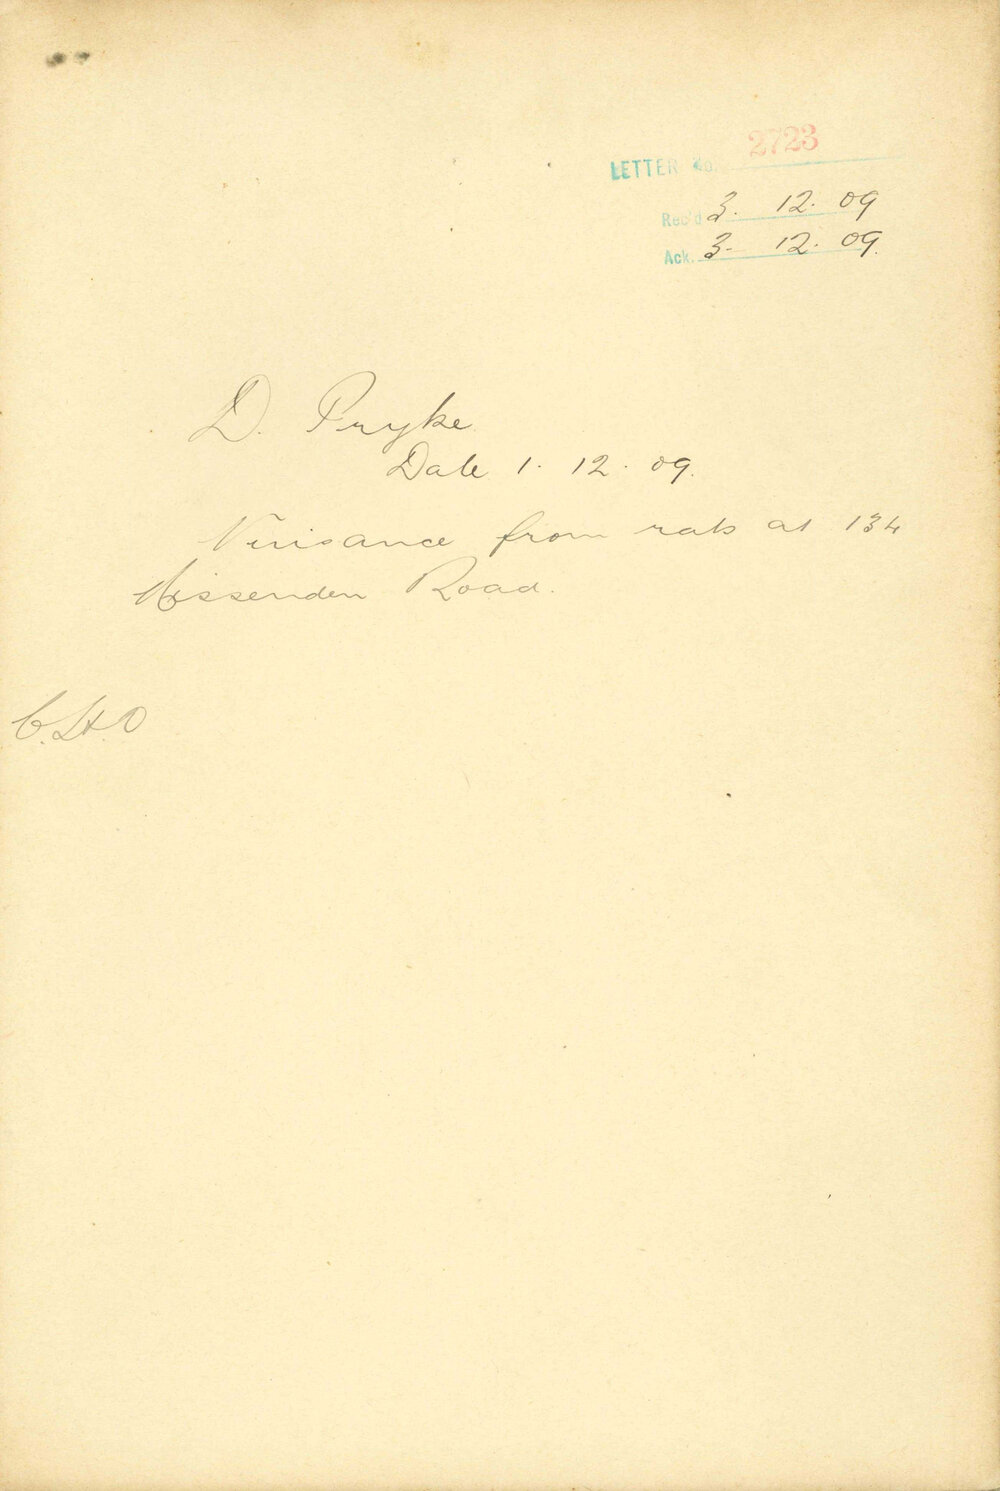 LETTER No. 2723
Rec'd 3. 12. 09
Ack. 3. 12. 09.
D. Pryke
Date 1. 12. 09.
Nuisance from rats at 134
Missenden Road.
C.H.O